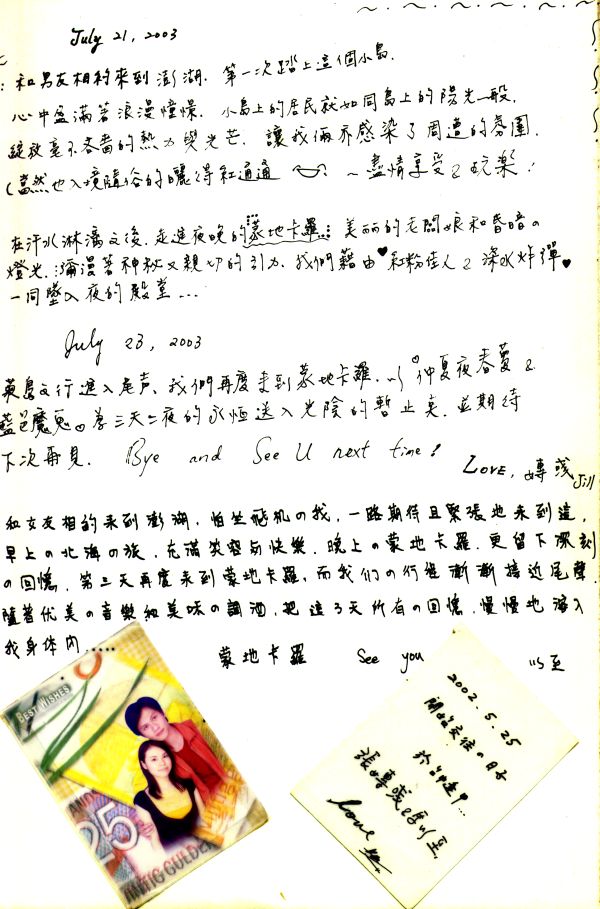 July 21, 2003
和男友相約來到澎湖. 第一次踏上這個小島.
心中盈滿著浪漫憧憬. 小島上的居民就如同島上的陽光一般.
綻放毫不吝嗇的熱力與光芒. 讓我倆亦感染了周遭的氛圍.
(當然也入境隨俗的曬得紅通通 ~盡情享受&玩樂!
在汗水淋漓之後. 走進夜晚的蒙地卡羅... 美麗的老闆娘和昏暗の
燈光. 瀰漫著神秘又親切的引力. 我們藉由♥紅粉佳人&深水炸彈♥
一同墜入夜的殿堂...
July 23, 2003
島之行進入尾声. 我們再度来到蒙地卡羅. 以仲夏夜春夢&
藍色魔鬼。為三天二夜的永恆送入光陰的暫止臭. 並期待
下次再見. Bye and See U next time!
Love, Jill
和女友相約来到澎湖. 怕坐飛机の我. 一路期待且緊張地来到這.
早上の北海の旅. 充滿笑容与快樂. 晚上の蒙地卡羅. 更留下深刻
の回憶. 第三天再度来到蒙地卡羅. 而我们の行程漸漸接近尾聲
隨著优美の音樂和美味の調酒. 把這3天所有の回憶. 慢慢地溶入
我身体內......
蒙地卡羅 See you 以至
BEST WISHES
25
2002.5.25
開始交往の日子
於台中逢甲...
Love